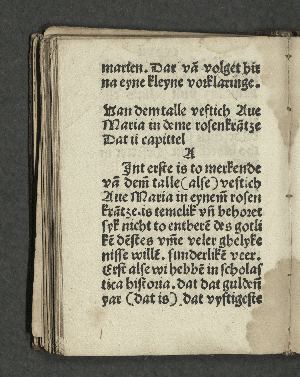 marien. Dar vā volget hir
na eyne kleyne vorklaringe.
Van dem talle veftich Aue
Maria in deme rosenkrātze
Dat ii capittel
A
Int erste is to merkende
vā dem̄ talle (alse) veftich
Aue Maria in eynem̄ rosen
krātze. is temelik vn̄ behoret
syk nicht to entherē des gotli
kē dēstes vm̄e veler ghelyke
nisse willē. sunderlikē veer.
Erst alse wi hebbē in scholas
tica historia. dat dat guldem̄
yar (dat is) . dat vyftigeste